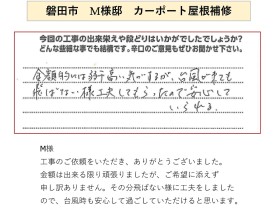 磐田市　M様邸　カーポート屋根補修
今回の工事の出来栄えや段どりはいかがでしたでしょうか?
どんな些細な事でも結構です。辛口のご意見もぜひお聞かせ下さい。
金額的には多少高い気がするが、台風が来ても
飛ばない様工夫してもらったので安心して
いられる。
M様
工事のご依頼をいただき、ありがとうございました。
金額は出来る限り頑張りましたが、ご希望に添えず
申し訳ありません。その分飛ばない様に工夫をしました
ので、台風時も安心して過ごしていただけると思います。